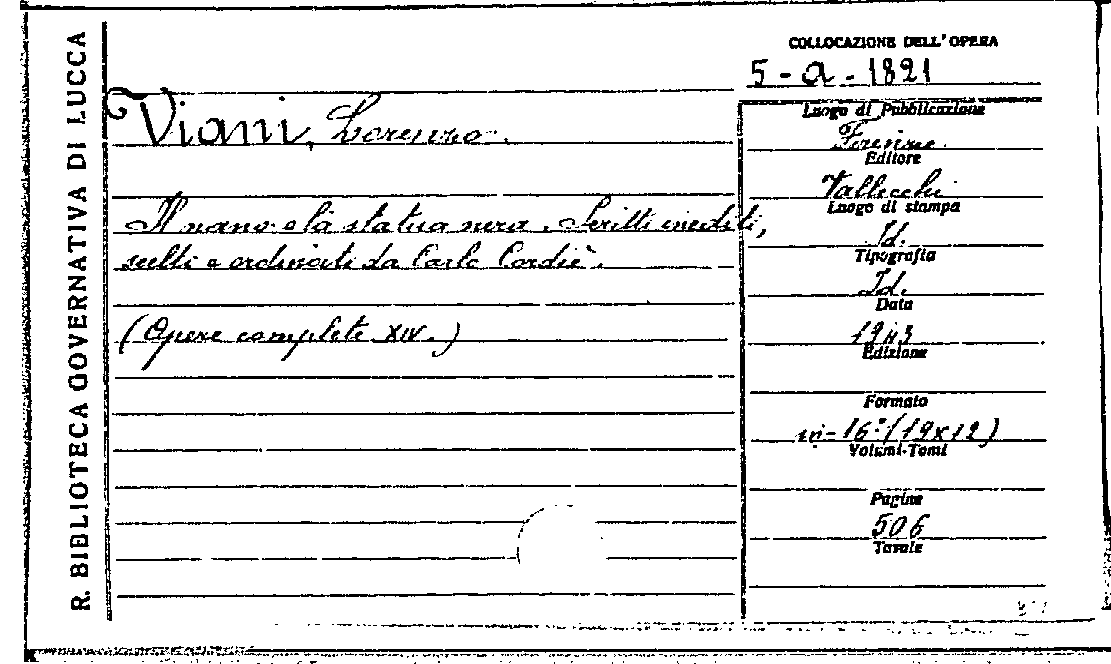 R. BIBLIOTECA GOVERNATIVA DI LUCCA
COLLOCAZIONE DELL'OPERA
5-a-1821
Viani, Lorenzo.
Il nano e la statua nera. Scritti inediti,
scelti e ordinati da Carlo Cordiè.
(Opere complete XIV.)
Luogo di Pubblicazione
Firenze
Editore
Vallecchi
Luogo di stampa
Id.
Tipografia
Id.
Data
1943
Edizione
Formato
in-16° (19x12)
Volumi-Tomi
Pagine
506
Tavole